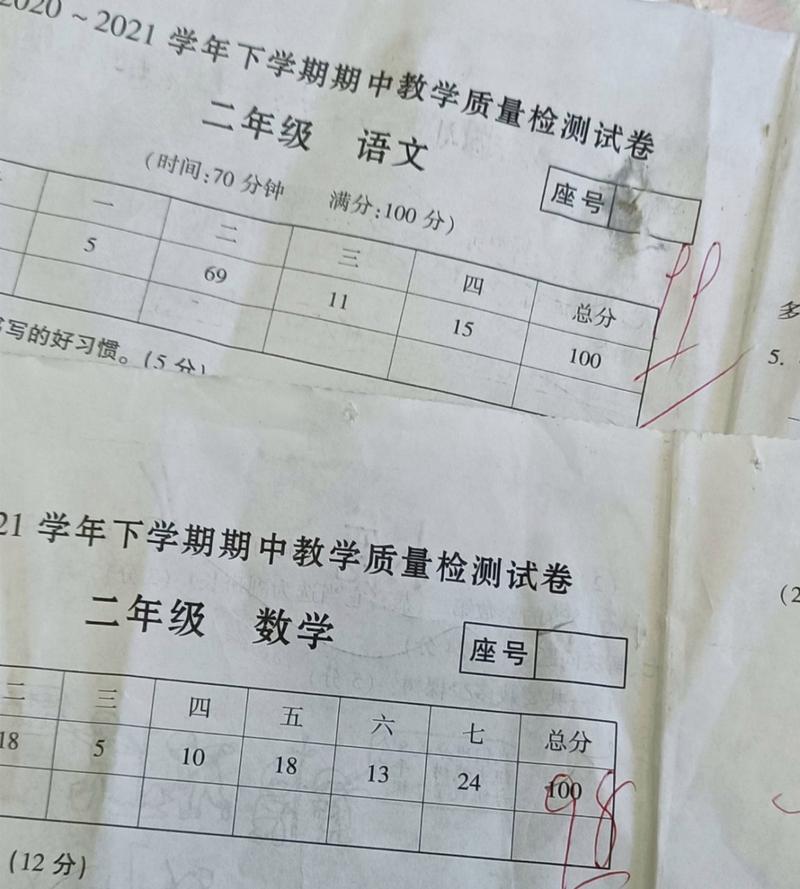 2020～2021 学年下学期期中教学质量检测试卷
二年级 语文
(时间:70 分钟 满分:100 分)
座号
一 二 三 四 总分
5 69 11 15 100
99
写的好习惯。(5 分)
多
5.
21 学年下学期期中教学质量检测试卷
二年级 数学
座号
二 三 四 五 六 七 总分
18 5 10 18 13 24 100
98
(12 分)
(2